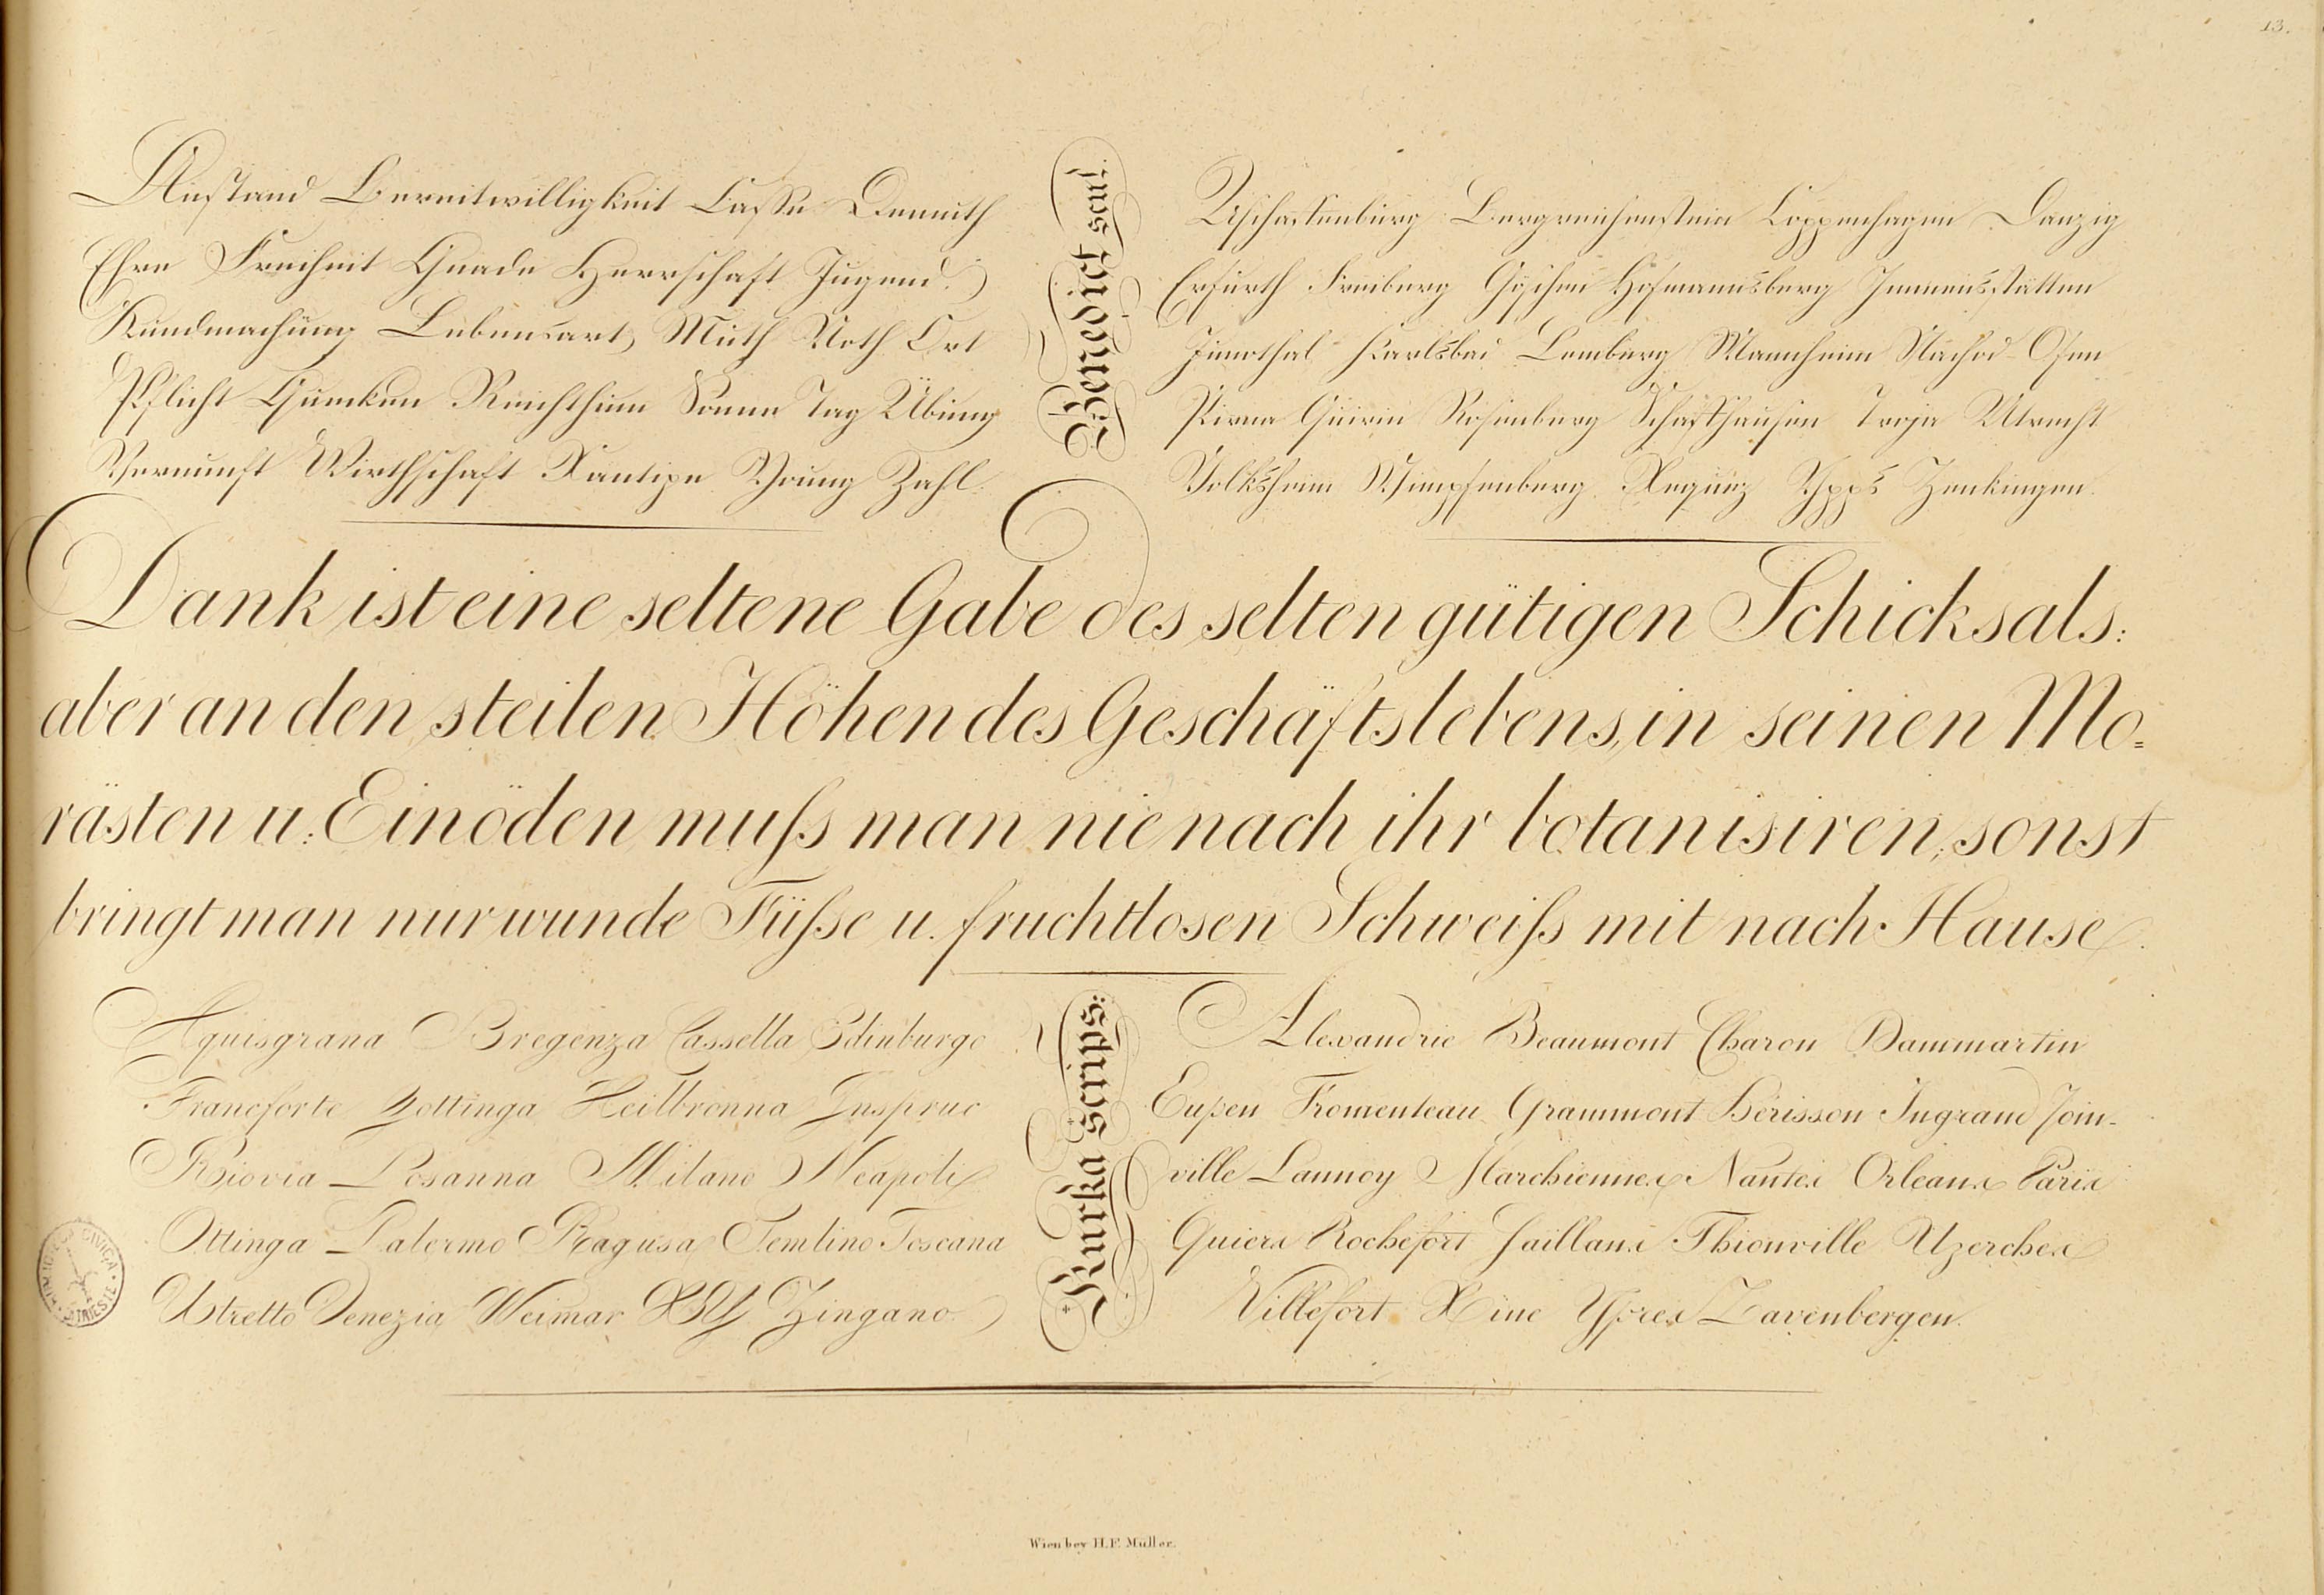 13.
Anstand Bereitwilligkeit Casse Demuth
Ehre Freiheit Gnade Herrschaft Jugend.
Kundmachung Lebensart Muth Noth Ort
Pflicht Quecken Reichthum Sonne Tag Übung
Vernunft Wirthschaft Xantipe Young Zahl.
Benedict sen:
Aschaffenburg Bergreichenstein Coppenhagen Danzig
Erfurth Freiburg Göschen Hofmannsberg Immensstätten
Jimothal Karlsbad Lemberg Mannheim Nachod Ofen
Pirna Rosenberg Schaffhausen Troja Utrecht
Volksheim Wimpfenberg Ypps Zenkingen.
Dank ist eine seltene Gabe des selten gütigen Schicksals:
aber an den steilen Höhen des Geschäftslebens, in seinen Mo=
rästen u: Einöden muſs man nie nach ihr botanisiren, sonst
bringt man nur wunde Füſse u. fruchtlosen Schweiſs mit nach Hause.
Aquisgrana Bregenza Cassella Edinburgo
Francforte Gottinga Heilbronna Inspruc
Kiovia Losanna Milano Neapoli
Ottinga Palermo Ragusa Semlino Toscana
Utretto Venezia Weimar XYZ Zingano.
Kurka scrips:
Alexandrie Beaumont Charon Dammartin
Eupen Fromenteau Grammont Hérisson Ingrand Join-
ville Lannoy Marchiennes Nantes Orleans Paris
Quiers Rochefort Saillans Thionville Uzerches
Villefort Xine Ypres Zavenbergen.
CIVICA TRIESTE
Wien bey H.F. Müller.